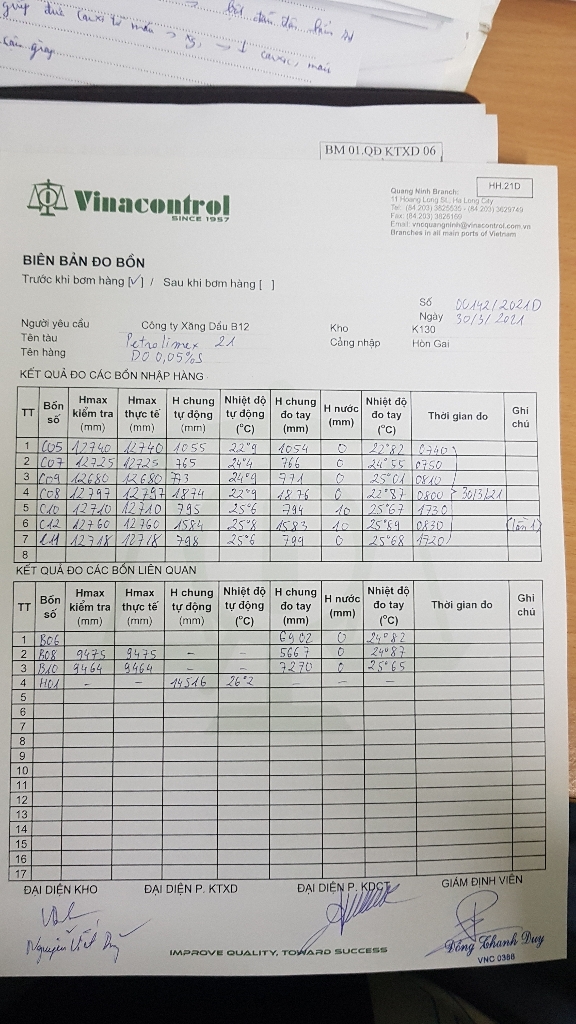 BM 01.QĐ KTXD 06
HH.21D
Vinacontrol
SINCE 1957
Quang Ninh Branch:
11 Hoang Long St., Ha Long City
Tel: (84.203) 3825535 - (84.203) 3629749
Fax: (84.203) 3826169
Email: vncquangninh@vinacontrol.com.vn
Branches in all main ports of Vietnam
BIÊN BẢN ĐO BỒN
Trước khi bơm hàng [√] / Sau khi bơm hàng [ ]
Số 00142/2021D
Ngày 30/3/2021
Người yêu cầu Công ty Xăng Dầu B12 Kho K130
Tên tàu Petrolimex 21 Cảng nhập Hòn Gai
Tên hàng DO 0,05%S
KẾT QUẢ ĐO CÁC BỒN NHẬP HÀNG
TT Bồn số Hmax kiểm tra (mm) Hmax thực tế (mm) H chung tự động (mm) Nhiệt độ tự động (°C) H chung đo tay (mm) H nước (mm) Nhiệt độ đo tay (°C) Thời gian đo Ghi chú
1 C05 12740 12740 1055 22°9 1054 0 22°82 0740
2 C07 12725 12725 765 24°4 766 0 24°55 0750
3 C09 12680 12680 773 24°9 771 0 25°01 0810
4 C08 12797 12797 1874 22°9 1876 0 22°87 0800 30/3/21
5 C10 12710 12710 795 25°6 794 10 25°67 1730
6 C12 12760 12760 1584 25°8 1583 10 25°89 0830 (lần 1)
7 C11 12718 12718 798 25°6 799 0 25°68 1720
8
KẾT QUẢ ĐO CÁC BỒN LIÊN QUAN
TT Bồn số Hmax kiểm tra (mm) Hmax thực tế (mm) H chung tự động (mm) Nhiệt độ tự động (°C) H chung đo tay (mm) H nước (mm) Nhiệt độ đo tay (°C) Thời gian đo Ghi chú
1 B06 6902 0 24°82
2 B08 9475 9475 - - 5667 0 24°87
3 B10 9464 9464 - - 7270 0 25°65
4 H01 - - 14516 26°2 - - -
5
6
7
8
9
10
11
12
13
14
15
16
17
ĐẠI DIỆN KHO ĐẠI DIỆN P. KTXD ĐẠI DIỆN P. KDCT GIÁM ĐỊNH VIÊN
Đồng Thanh Duy
VNC 0386
IMPROVE QUALITY, TOWARD SUCCESS